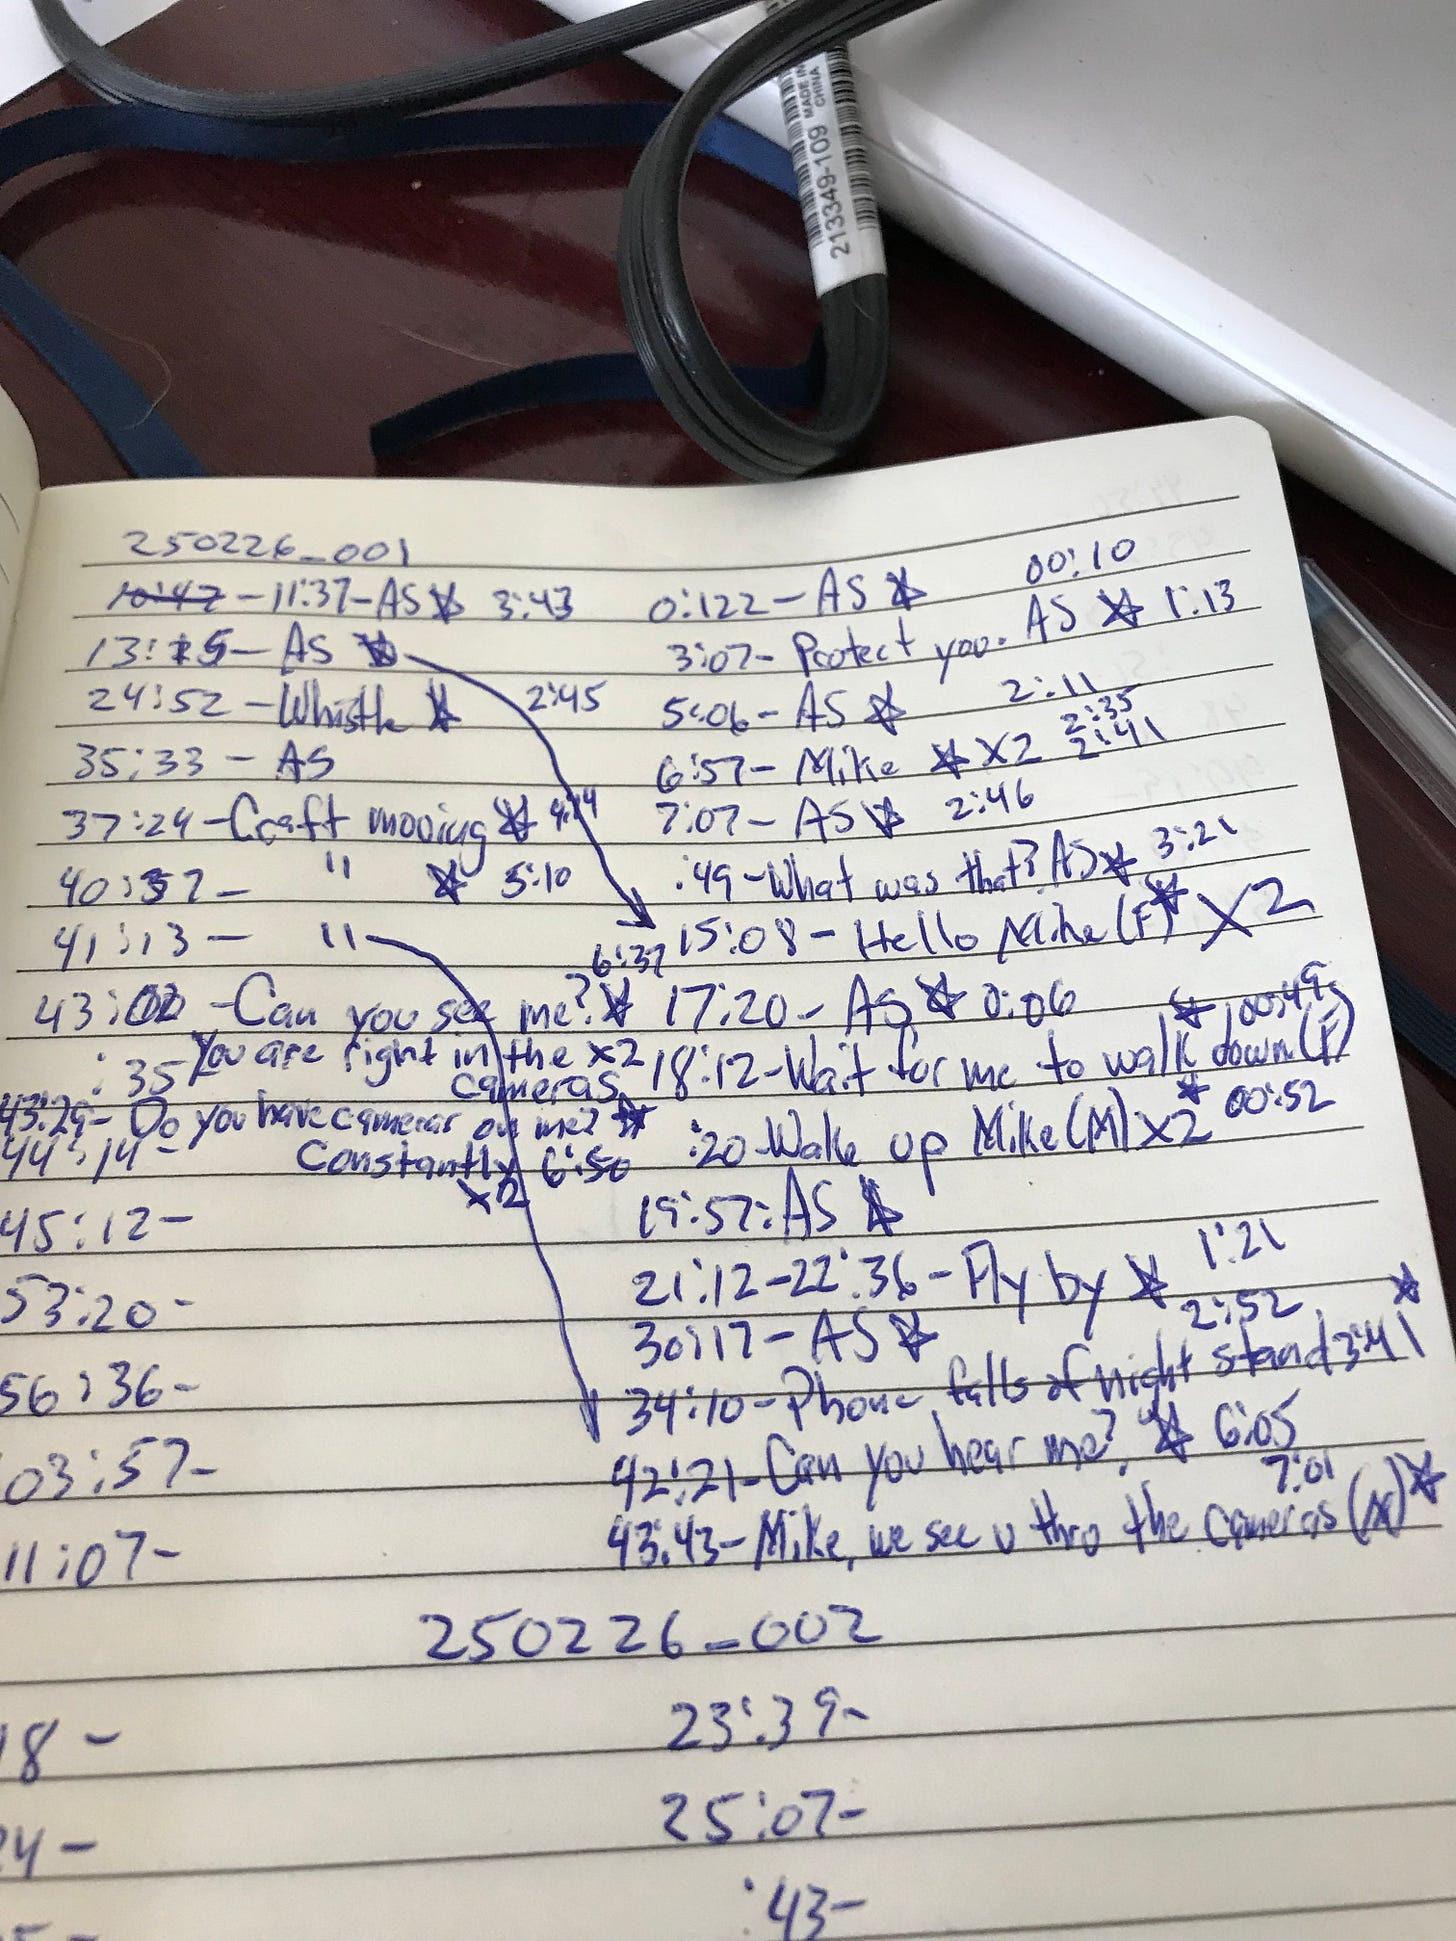 MADE IN
CHINA
213349-109
250226_001
10:47 - 11:37-AS☆ 3:43
13:15- AS ☆
24:52 - Whistle ☆ 2:45
35:33 - AS
37:24 - Craft moving ☆
40:37 - " ☆ 5:10
41:13 - "
43:00 - Can you see me? ☆ 6:37
:35 - You are right in the x2
cameras
43:29 - Do you have cameras on me? ☆
44:14 - Constantly 6:50
x2
45:12 -
53:20 -
56:36 -
03:57 -
11:07 -
00:10
0:122 - AS ☆
3:07 - Protect you. AS ☆ 1:13
5:06 - AS ☆ 2:11
2:35
6:57 - Mike ☆ X2 2:41
7:07 - AS ☆ 2:46
:49 - What was that? AS ☆ 3:21
15:08 - Hello Mike (F) ☆ X2
17:20 - AS ☆ 0:06
☆ 00:49
18:12 - Wait for me to walk down (F)
:20 - Wake up Mike (M) x2 ☆ 00:52
19:57: AS ☆
21:12-22:36 - Fly by ☆ 1:21
30:17 - AS ☆ 2:52
34:10 - Phone falls of night stand 3:41 ☆
42:21 - Can you hear me? ☆ 6:05
7:01
43:43 - Mike, we see u thro the cameras ☆
250226_002
18 -
24 -
23:39 -
25:07 -
:43 -